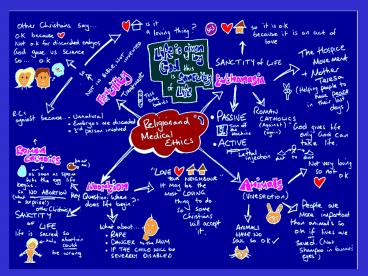 Other Christians say...
OK because
Not OK for discarded embryos
God gave us science
So... OK
is it
a loving thing?
NOT IN BIBLE, NOT INTENDED
Fertility
Test tube babies
Life is given
by
God
this is
SANCTITY
of
LIFE
so it is OK
because it is an act
of love
SANCTITY of LIFE
Euthanasia
The Hospice
Movement
+ Mother
Teresa
(Helping people to
have PEACE
in their last
days)
PASSIVE
Turn off
the
machine
ROMAN
CATHOLICS
(Against)
ACTIVE
lethal
injection
God gives life
only God can
take life.
R.C.s
against because...
- Unnatural
- Embryos are discarded
- 3rd person involved
Religion and
Medical
Ethics
ROMAN
CATHOLICS
as soon as sperm
hits the egg life
begins.
So NO ABORTION
other Christians
SANCTITY
of
LIFE
life is sacred so
abortion
could
be wrong
ABORTION
Key Question, where
does life begin?
What about...
• RAPE
• DANGER to the MUM
• IF THE CHILD WILL BE
SEVERELY DISABLED
"LOVE
YOUR NEIGHBOUR"
It may be the
most LOVING
thing to
do so
some
Christians
will accept
it.
Animals
(VIVISECTION)
ANIMALS
HAVE NO
SOUL so OK
Not very loving
so not OK
People are
more important
than animals so
OK if lives are
saved. (Not
Shampoo in bunnies
eyes)